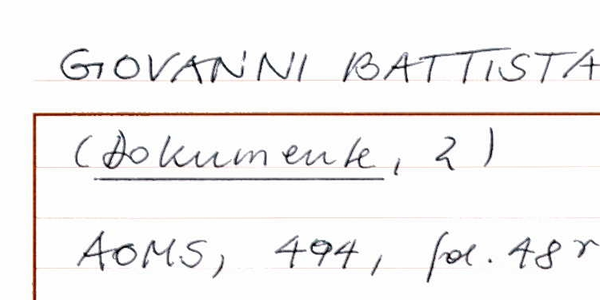 GIOVANNI BATTISTA
(Dokumente, 2)
AOMS, 494, fol. 48r